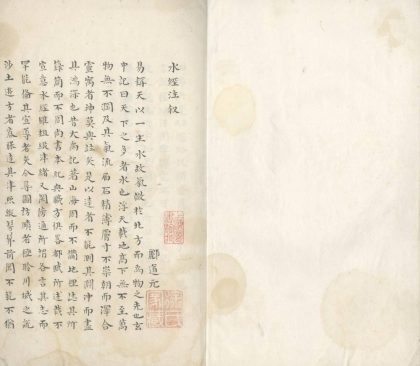 水經注叙
酈道元
易稱天以一生水故氣微於北方而為物之先也玄
中記曰天下之多者水也浮天載地高下無不至萬
物無不潤及其氣流屆石精薄膚寸不崇朝而澤合
靈宇者神莫與並矣是以達者不能測其淵沖而盡
其鴻深也昔大禹記著山海周而不備地理志其所
錄簡而不周尚書本紀與職方俱畧都賦所述裁不
宣意水經雖粗綴津緒又闕旁通所謂各言其志而
罕能備其宣導者矣今尋圖訪賾者極聆州域之說
涉土遊方者寡能達其津照縱髣髴前聞不能不猶